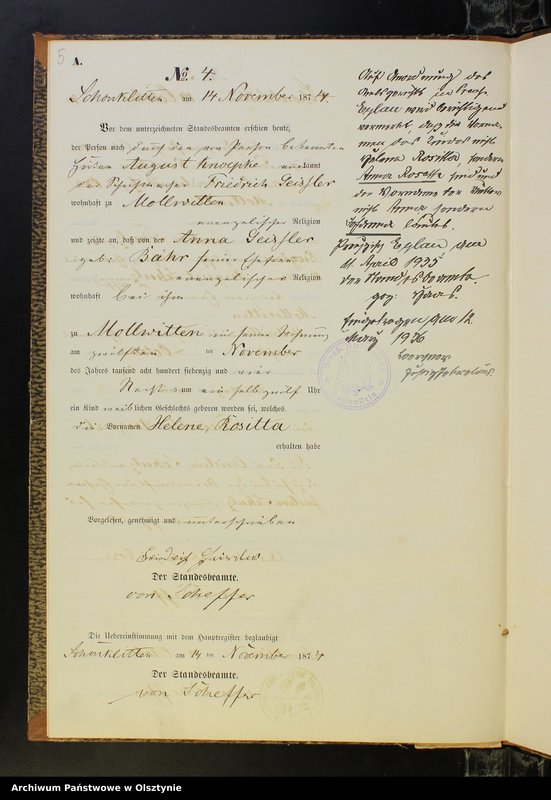 5
A.
No. 4.
Schönklitten am 14 November 1874.
Vor dem unterzeichneten Standesbeamten erschien heute,
der Person nach durch den von Person bekannten
August Knoepke kannt
Friedrich Geissler
wohnhaft zu Mollwitten
evangelischer Religion
und zeigte an, daß von der Anna Geissler
geb. Bähr seiner Ehefrau
evangelischer Religion
wohnhaft bei ihm
zu Mollwitten in seiner Wohnung
am zwölften ten November
des Jahres tausend acht hundert siebenzig und vier
Nachts um ein halb zwölf Uhr
ein Kind weiblichen Geschlechts geboren worden sei, welches
die Vornamen Helene, Rositta
erhalten habe
Vorgelesen, genehmigt und unterschrieben
Friedrich
Der Standesbeamte.
von Scheffer
Die Uebereinstimmung mit dem Hauptregister beglaubigt
Schönklitten am 14 ten November 1874
Der Standesbeamte.
von Scheffer
Auf Anordnung des
Amtsgerichts in Preuß.
Eylau wird berichtigend
vermerkt, daß die Vorna-
men des Kindes nicht
Helene Rositta, sondern
Anna Rosette sind und
der Vorname der Mutter
nicht Anna sondern
Johanna lautet.
Preußisch Eylau, den
11. April 1935
Der Standesbeamte.
gez. Haas.
Eingetragen, den 12.
März 1936
Archiwum Państwowe w Olsztynie